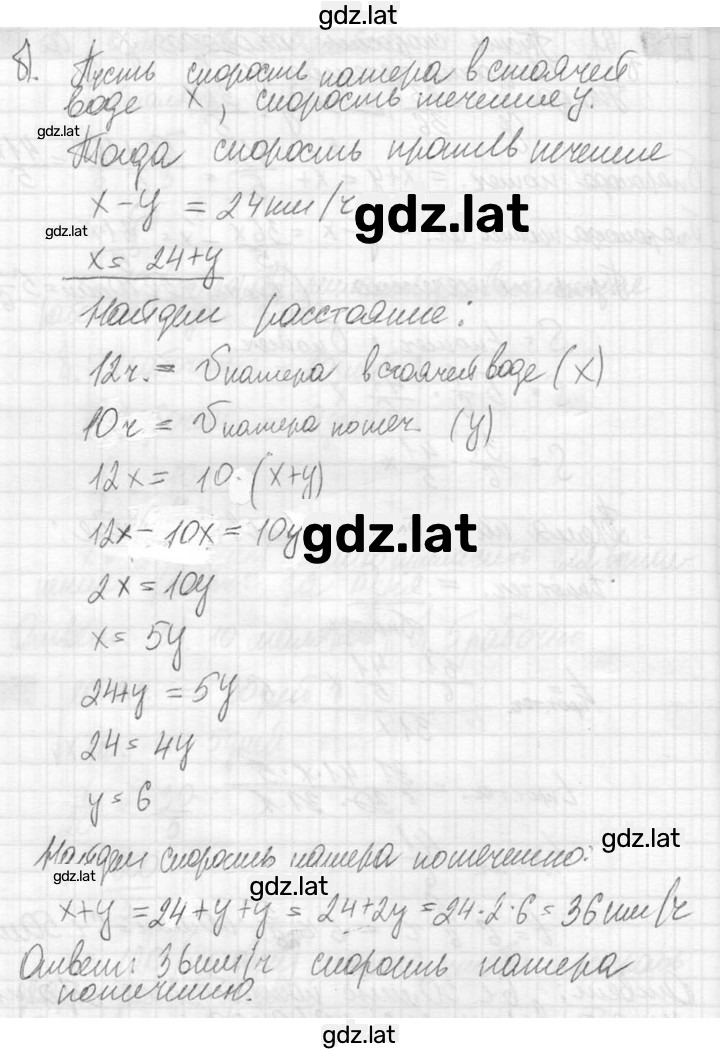 gdz.lat
б). Пусть скорость катера в стоячей
воде x, скорость течение y.
gdz.lat
Тогда скорость против течение
x - y = 24 км/ч
gdz.lat
gdz.lat
x = 24+y
Найдем расстояние:
12ч. = V катера в стоячей воде (x)
10ч = V катера по теч. (y)
12x = 10·(x+y)
12x - 10x = 10y
gdz.lat
2x = 10y
x = 5y
24+y = 5y
24 = 4y
y = 6
gdz.lat
Найдем скорость катера по течению:
gdz.lat
gdz.lat
x+y = 24+y+y = 24+2y = 24·2·6 = 36 км/ч
Ответ: 36 км/ч скорость катера
по течению.
gdz.lat